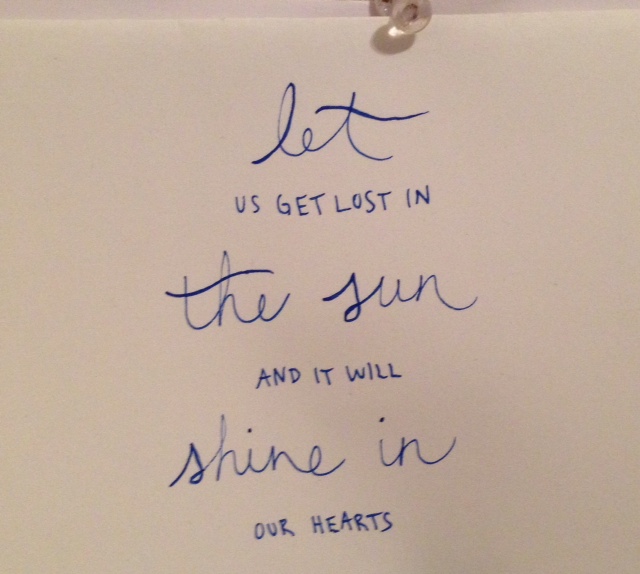 let
US GET LOST IN
the sun
AND IT WILL
shine in
OUR HEARTS